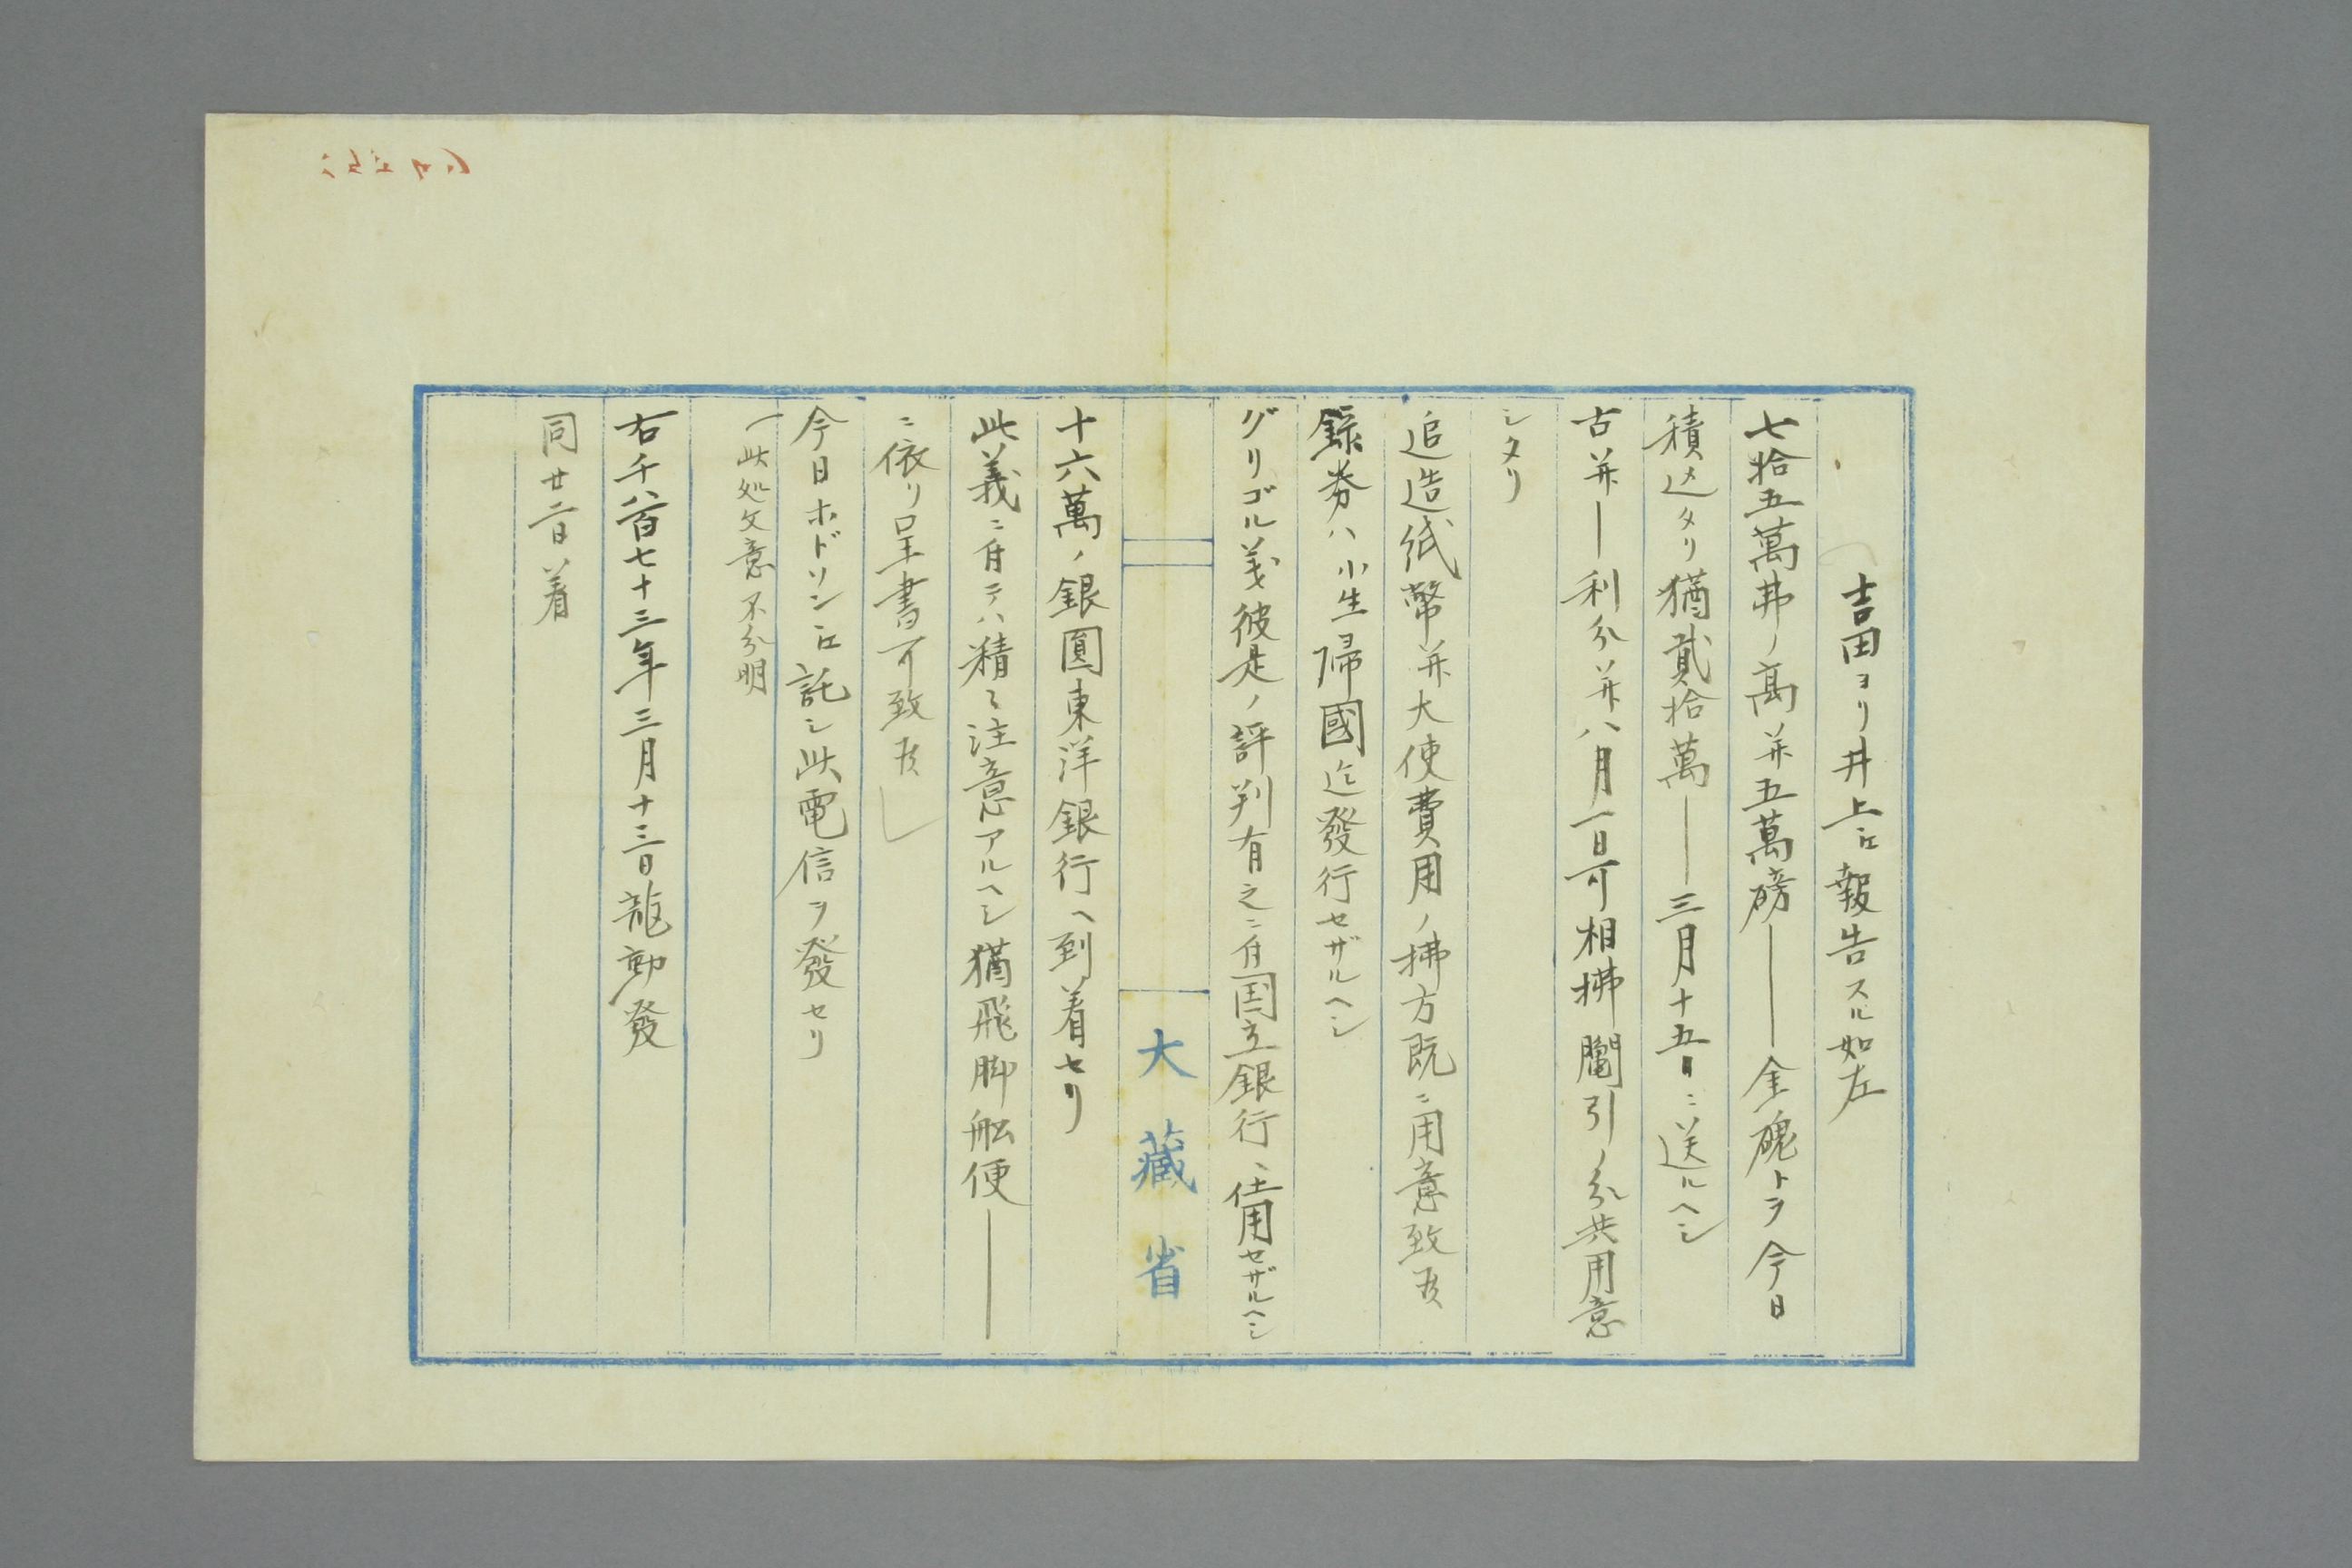 吉田ヨリ井上江報告スル如左
七拾五萬弗ノ高并五萬磅――金磈トヲ今日
積込タリ猶貳拾萬――三月十五日ニ送ルヘシ
古并―利分并八月一日可相拂鬮引ノ分共用意
シタリ
追造紙幣并大使費用ノ拂方既ニ用意致候
録券ハ小生帰國迄發行セザルヘシ
グリゴル義彼是ノ評判有之ニ付国立銀行ニ雇用セザルヘシ
大藏省
十六萬ノ銀圓東洋銀行ヘ到着セリ
此義ニ付テハ精々注意アルヘシ猶飛脚舩便――
ニ依リ呈書可致候
今日ホドソン江託シ此電信ヲ發セリ
一此処文意不分明
右千八百七十三年三月十三日龍動發
同廿二日着